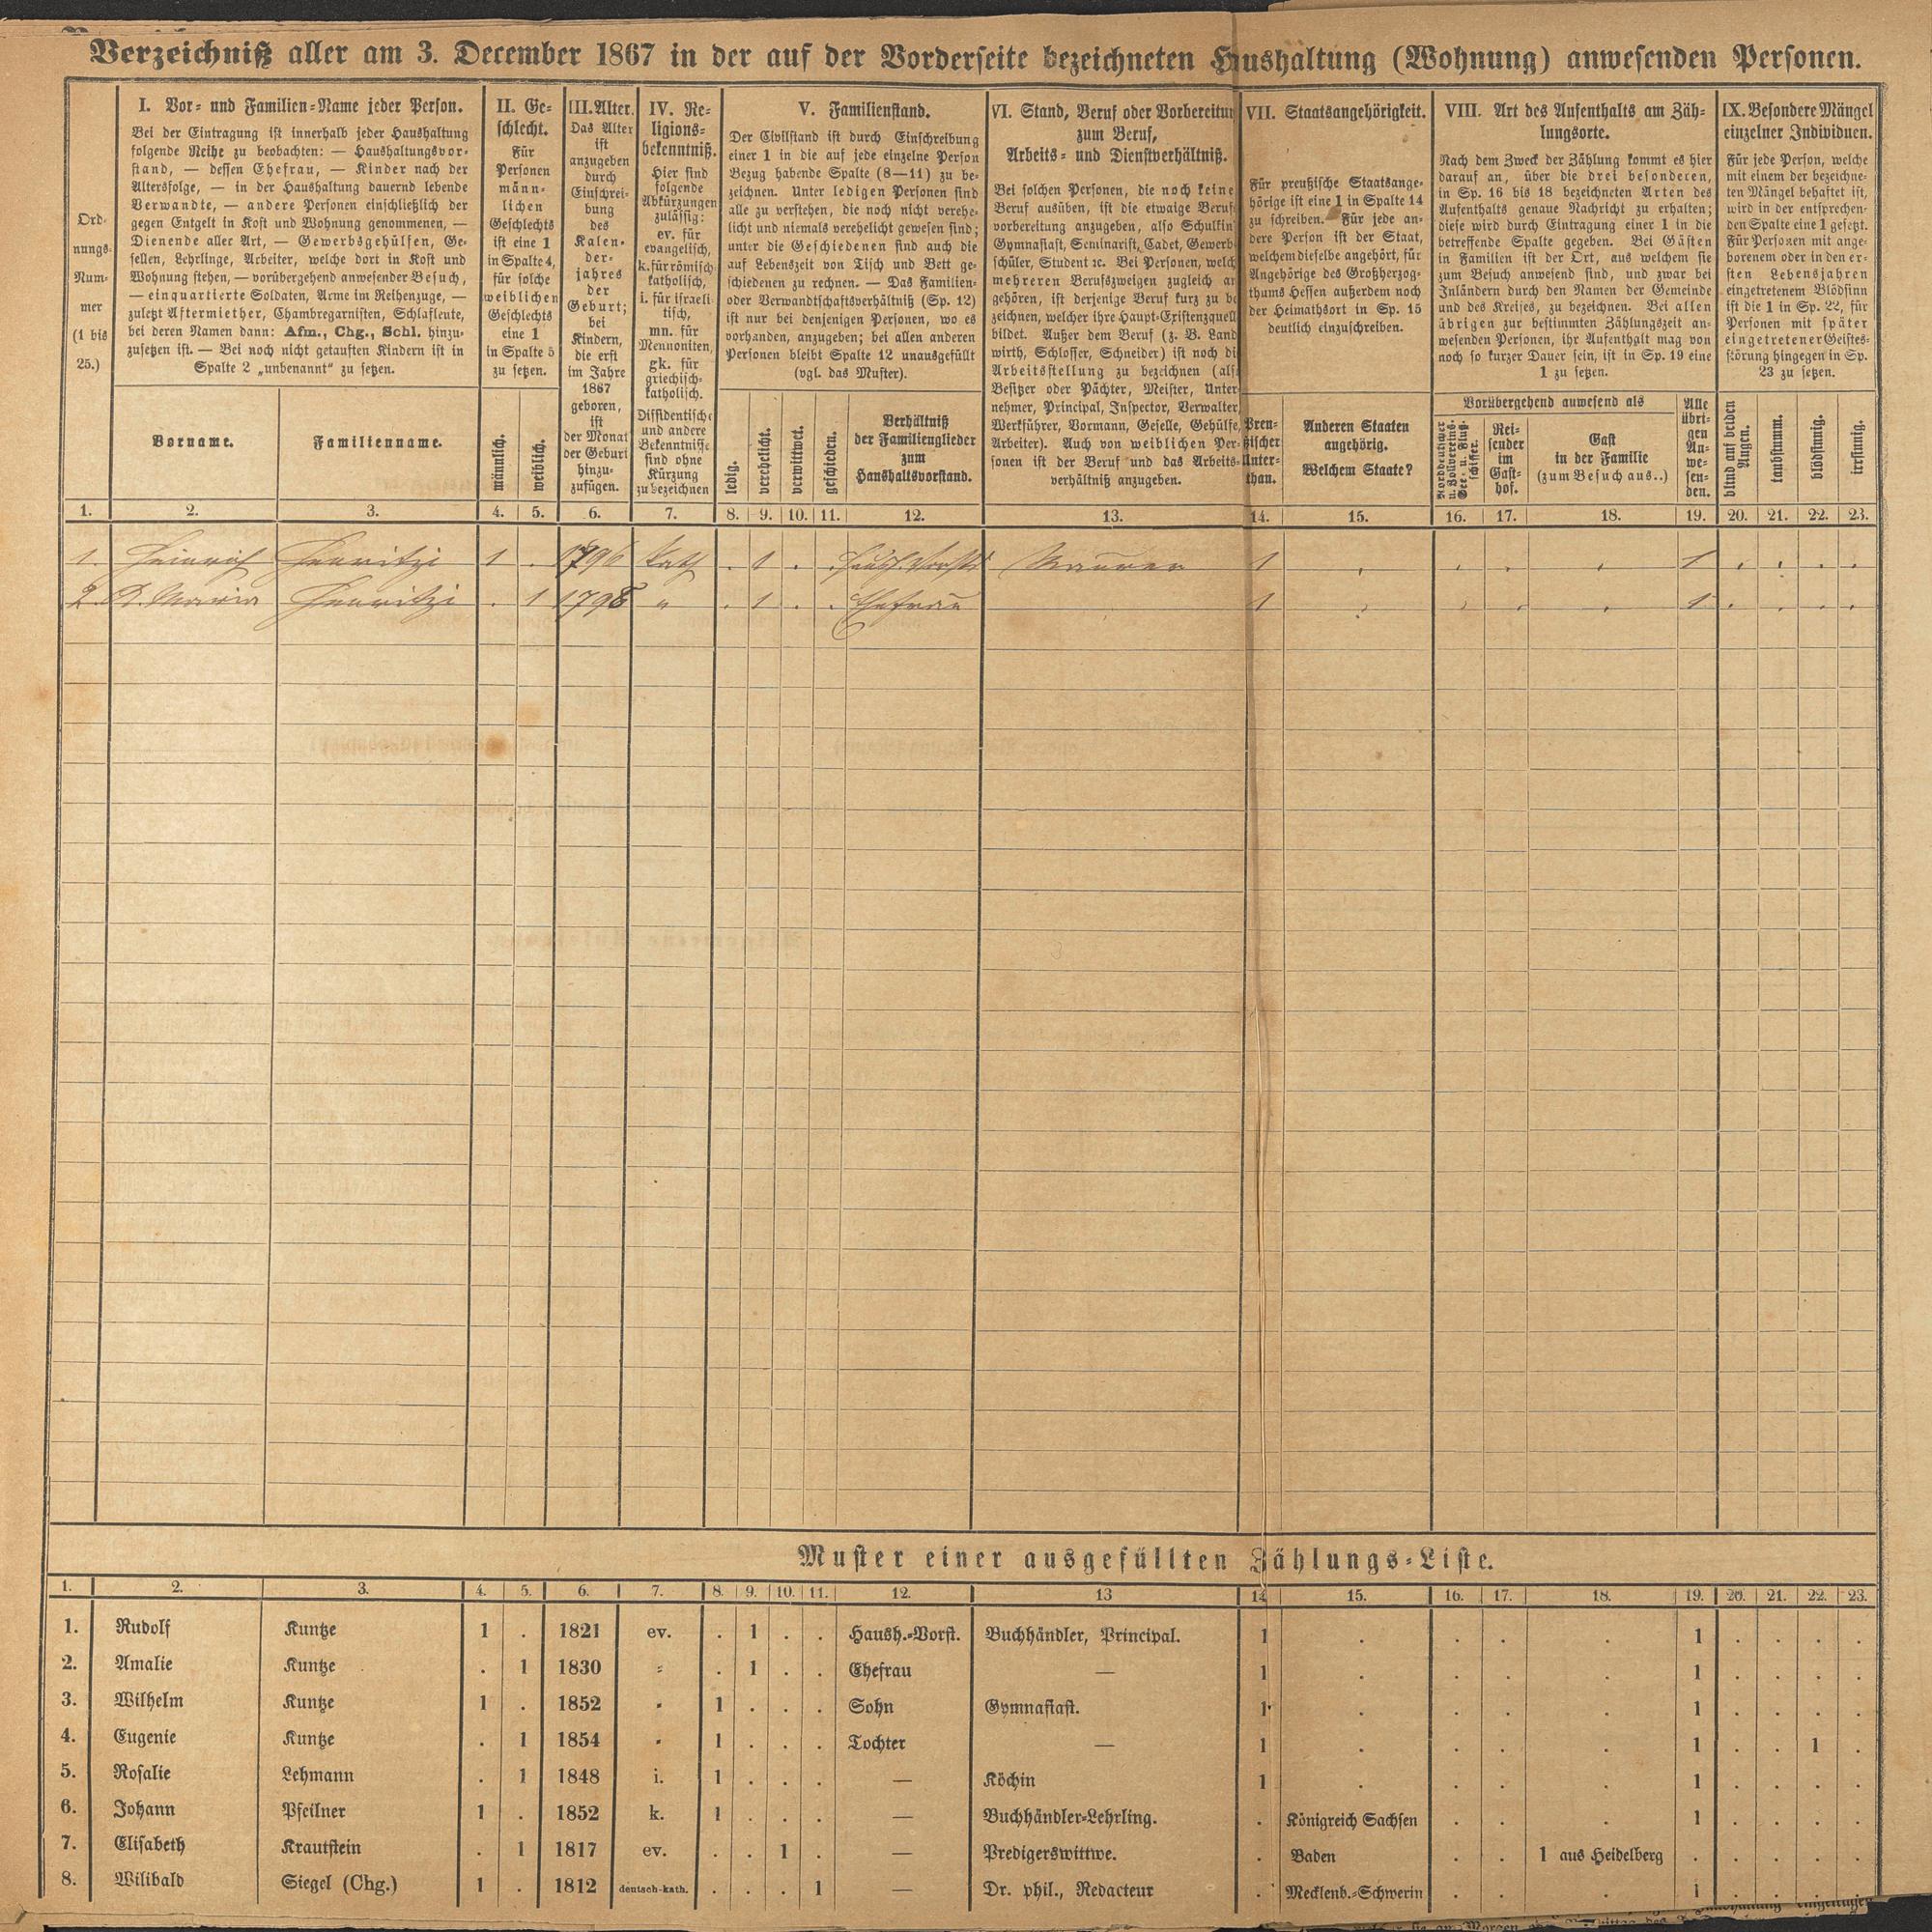 Verzeichniß aller am 3. December 1867 in der auf der Vorderseite bezeichneten Haushaltung (Wohnung) anwesenden Personen.
Ord-
nungs-
Num-
mer
(1 bis
25.)
I. Vor- und Familien-Name jeder Person.
Bei der Eintragung ist innerhalb jeder Haushaltung
folgende Reihe zu beobachten: — Haushaltungsvor-
stand, — dessen Ehefrau, — Kinder nach der
Altersfolge, — in der Haushaltung dauernd lebende
Verwandte, — andere Personen einschließlich der
gegen Entgelt in Kost und Wohnung genommenen, —
Dienende aller Art, — Gewerbsgehülfen, Ge-
sellen, Lehrlinge, Arbeiter, welche dort in Kost und
Wohnung stehen, — vorübergehend anwesender Besuch,
— einquartierte Soldaten, Arme im Reihenzuge, —
zuletzt Aftermiether, Chambregarnisten, Schlafleute,
bei deren Namen dann: Afm., Chg., Schl. hinzu-
zusetzen ist. — Bei noch nicht getauften Kindern ist in
Spalte 2 „unbenannt" zu setzen.
Vorname.
Familienname.
II. Ge-
schlecht.
Für
Personen
männ-
lichen
Geschlechts
ist eine 1
in Spalte 4,
für solche
weiblichen
Geschlechts
eine 1
in Spalte 5
zu setzen.
männlich.
weiblich.
III. Alter.
Das Alter
ist
anzugeben
durch
Einschrei-
bung
des
Kalen-
der-
jahres
der
Geburt;
bei
Kindern,
die erst
im Jahre
1867
geboren,
ist
der Monat
der Geburt
hinzu-
zufügen.
IV. Re-
ligions-
bekenntniß.
Hier sind
folgende
Abkürzungen
zulässig:
ev. für
evangelisch,
k. für römisch-
katholisch,
i. für israeli-
tisch,
mn. für
Mennoniten,
gk. für
griechisch-
katholisch.
Dissidentische
und andere
Bekenntnisse
sind ohne
Kürzung
zu bezeichnen
V. Familienstand.
Der Civilstand ist durch Einschreibung
einer 1 in die auf jede einzelne Person
Bezug habende Spalte (8—11) zu be-
zeichnen. Unter ledigen Personen sind
alle zu verstehen, die noch nicht verehe-
licht und niemals verehelicht gewesen sind;
unter die Geschiedenen sind auch die
auf Lebenszeit von Tisch und Bett ge-
schiedenen zu rechnen. — Das Familien-
oder Verwandtschaftsverhältniß (Sp. 12)
ist nur bei denjenigen Personen, wo es
vorhanden, anzugeben; bei allen anderen
Personen bleibt Spalte 12 unausgefüllt
(vgl. das Muster).
ledig.
verehelicht.
verwittwet.
geschieden.
Verhältniß
der Familienglieder
zum
Haushaltsvorstand.
VI. Stand, Beruf oder Vorbereitun
zum Beruf,
Arbeits- und Dienstverhältniß.
Bei solchen Personen, die noch keine
Beruf ausüben, ist die etwaige Beruf
vorbereitung anzugeben, also Schulkin
Gymnasiast, Seminarist, Cadet, Gewerb
schüler, Student ꝛc. Bei Personen, welch
mehreren Berufszweigen zugleich an
gehören, ist derjenige Beruf kurz zu be
zeichnen, welcher ihre Haupt-Existenzquell
bildet. Außer dem Beruf (z. B. Land
wirth, Schlosser, Schneider) ist noch di
Arbeitsstellung zu bezeichnen (als
Besitzer oder Pächter, Meister, Unter
nehmer, Principal, Inspector, Verwalter,
Werkführer, Vormann, Geselle, Gehülfe,
Arbeiter). Auch von weiblichen Per-
sonen ist der Beruf und das Arbeits-
verhältniß anzugeben.
VII. Staatsangehörigkeit.
Für preußische Staatsange-
hörige ist eine 1 in Spalte 14
zu schreiben. Für jede an-
dere Person ist der Staat,
welchem dieselbe angehört, für
Angehörige des Großherzog-
thums Hessen außerdem noch
der Heimathsort in Sp. 15
deutlich einzuschreiben.
Preu-
ßischer
Unter-
than.
Anderen Staaten
angehörig.
Welchem Staate?
VIII. Art des Aufenthalts am Zäh-
lungsorte.
Nach dem Zweck der Zählung kommt es hier
darauf an, über die drei besonderen,
in Sp. 16 bis 18 bezeichneten Arten des
Aufenthalts genaue Nachricht zu erhalten;
diese wird durch Eintragung einer 1 in die
betreffende Spalte gegeben. Bei Gästen
in Familien ist der Ort, aus welchem sie
zum Besuch anwesend sind, und zwar bei
Inländern durch den Namen der Gemeinde
und des Kreises, zu bezeichnen. Bei allen
übrigen zur bestimmten Zählungszeit an-
wesenden Personen, ihr Aufenthalt mag von
noch so kurzer Dauer sein, ist in Sp. 19 eine
1 zu setzen.
Vorübergehend anwesend als
Norddeutscher
u. Zollvereins-
See- u. Fluß-
schiffer.
Rei-
sender
im
Gast-
hof.
Gast
in der Familie
(zum Besuch aus..)
Alle
übri-
gen
An-
we-
sen-
den.
IX. Besondere Mängel
einzelner Individuen.
Für jede Person, welche
mit einem der bezeichne-
ten Mängel behaftet ist,
wird in der entsprechen-
den Spalte eine 1 gesetzt.
Für Personen mit ange-
borenem oder in den er-
sten Lebensjahren
eingetretenem Blödsinn
ist die 1 in Sp. 22, für
Personen mit später
eingetretener Geistes-
störung hingegen in Sp.
23 zu setzen.
blind auf beiden
Augen.
taubstumm.
blödsinnig.
irrsinnig.
1. 2. 3. 4. 5. 6. 7. 8. 9. 10. 11. 12. 13. 14. 15. 16. 17. 18. 19. 20. 21. 22. 23.
1. Heinrich Henritzi 1 . 1796 kath . 1 . . Haush. Vorst. Maurer 1 . . . . 1 . . . .
2. A. Maria Henritzi . 1 1798 " . 1 . . Ehefrau 1 . . . . 1 . . . .
Muster einer ausgefüllten Zählungs-Liste.
1. 2. 3. 4. 5. 6. 7. 8. 9. 10. 11. 12. 13 14 15. 16. 17. 18. 19. 20. 21. 22. 23.
1. Rudolf Kuntze 1 . 1821 ev. . 1 . . Haush.-Vorst. Buchhändler, Principal. 1 . . . . 1 . . . .
2. Amalie Kuntze . 1 1830 " . 1 . . Ehefrau — 1 . . . . 1 . . . .
3. Wilhelm Kuntze 1 . 1852 " 1 . . . Sohn Gymnasiast. 1 . . . . 1 . . . .
4. Eugenie Kuntze . 1 1854 " 1 . . . Tochter — 1 . . . . 1 . . 1 .
5. Rosalie Lehmann . 1 1848 i. 1 . . . — Köchin 1 . . . . 1 . . . .
6. Johann Pfeilner 1 . 1852 k. 1 . . . — Buchhändler-Lehrling. . Königreich Sachsen . . . 1 . . . .
7. Elisabeth Krautstein . 1 1817 ev. . . 1 . — Predigerswittwe. . Baden . . 1 aus Heidelberg . . . . .
8. Wilibald Siegel (Chg.) 1 . 1812 deutsch-kath. . . . 1 — Dr. phil., Redacteur . Mecklenb.-Schwerin . . . 1 . . . .